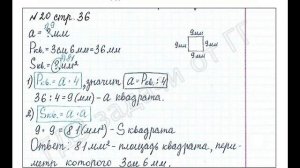 №20 стр. 36
9
a = ? мм
Pкв. = 3см 6мм = 36мм
81
Sкв. = ? мм²
9мм
9мм
9мм
9мм
1) Pкв. = a · 4, значит a = Pкв : 4
36 : 4 = 9 (мм) - a квадрата.
2) Sкв. = a · a
9 · 9 = 81 (мм²) - S квадрата
Ответ: 81 мм² - площадь квадрата, пери-
метр которого 3см 6 мм.